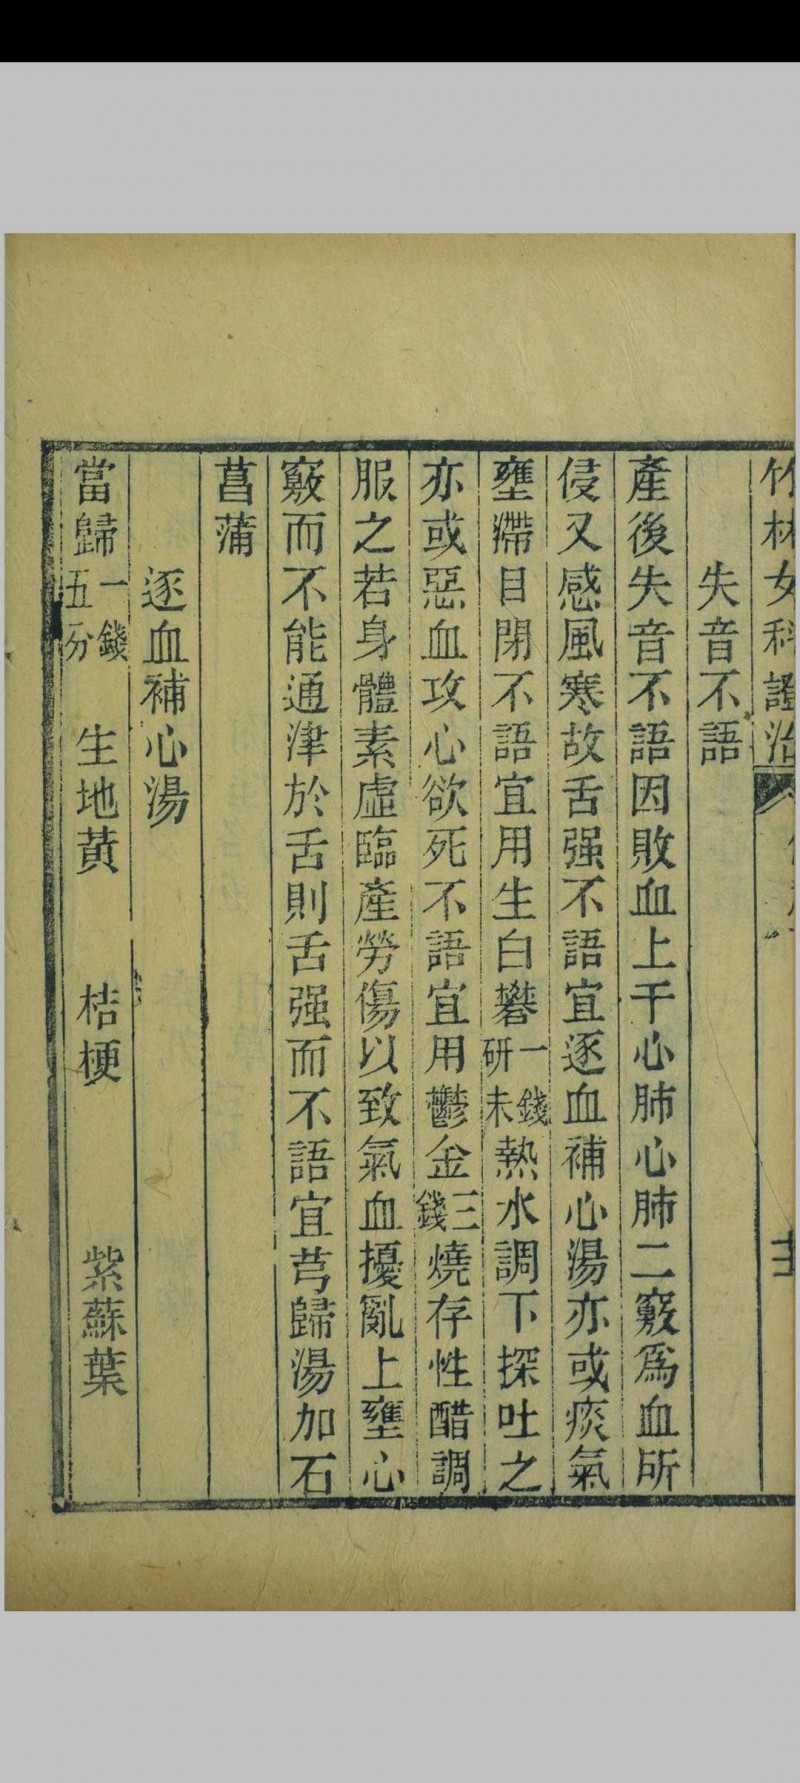 竹林女科證治
失音不語
產後失音不語因敗血上干心肺心肺二竅爲血所
侵又感風寒故舌强不語宜逐血補心湯亦或痰氣
壅滯目閉不語宜用生白礬一錢研末熱水調下探吐之
亦或惡血攻心欲死不語宜用鬱金三錢燒存性醋調
服之若身體素虛臨產勞傷以致氣血擾亂上壅心
竅而不能通津於舌則舌强而不語宜芎歸湯加石
菖蒲
逐血補心湯
當歸一錢五分 生地黃 桔梗 紫蘇葉